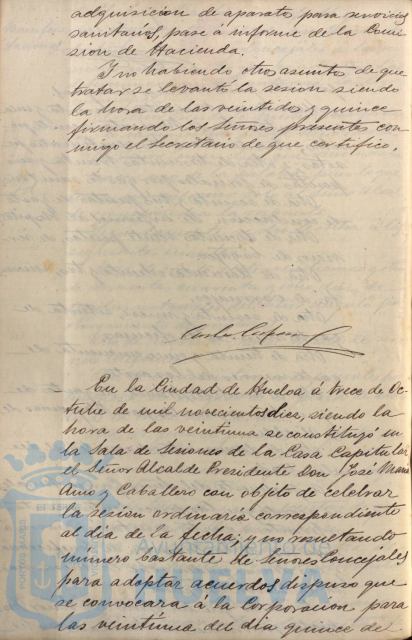 adquisicion de aparato para servicios
sanitarios, pase á informe de la Comi
sion de Hacienda.
Y no habiendo otro asunto de que
tratar se levantó la sesion siendo
la hora de las veintidos y quince
firmando los Señores presentes con
migo el Secretario de que certifico.
En la Ciudad de Huelva á trece de Oc-
tubre de mil novecientos diez, siendo la
hora de las veintiuna se constituyó en
la Sala de Sesiones de la Casa Capitular
el Señor Alcalde Presidente Don José María
Amo y Caballero con objeto de celebrar
la sesion ordinaria correspondiente
al dia de la fecha; y no resultando
número bastante de Señores Concejales
para adoptar acuerdos dispuso que
se convocara á la Corporacion para
las veintiuna del dia quince del